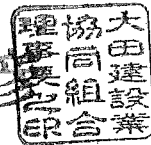 大田建設業
協同組合
理事長之印